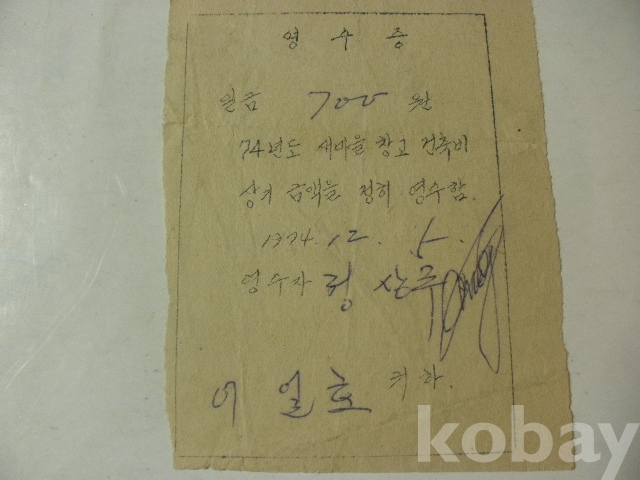 영수증
일금 700 원
74년도 새마을 창고 건축비
상기 금액을 정히 영수함.
1974. 12. 5.
영수자 정상규
이일호 귀하.
kobay